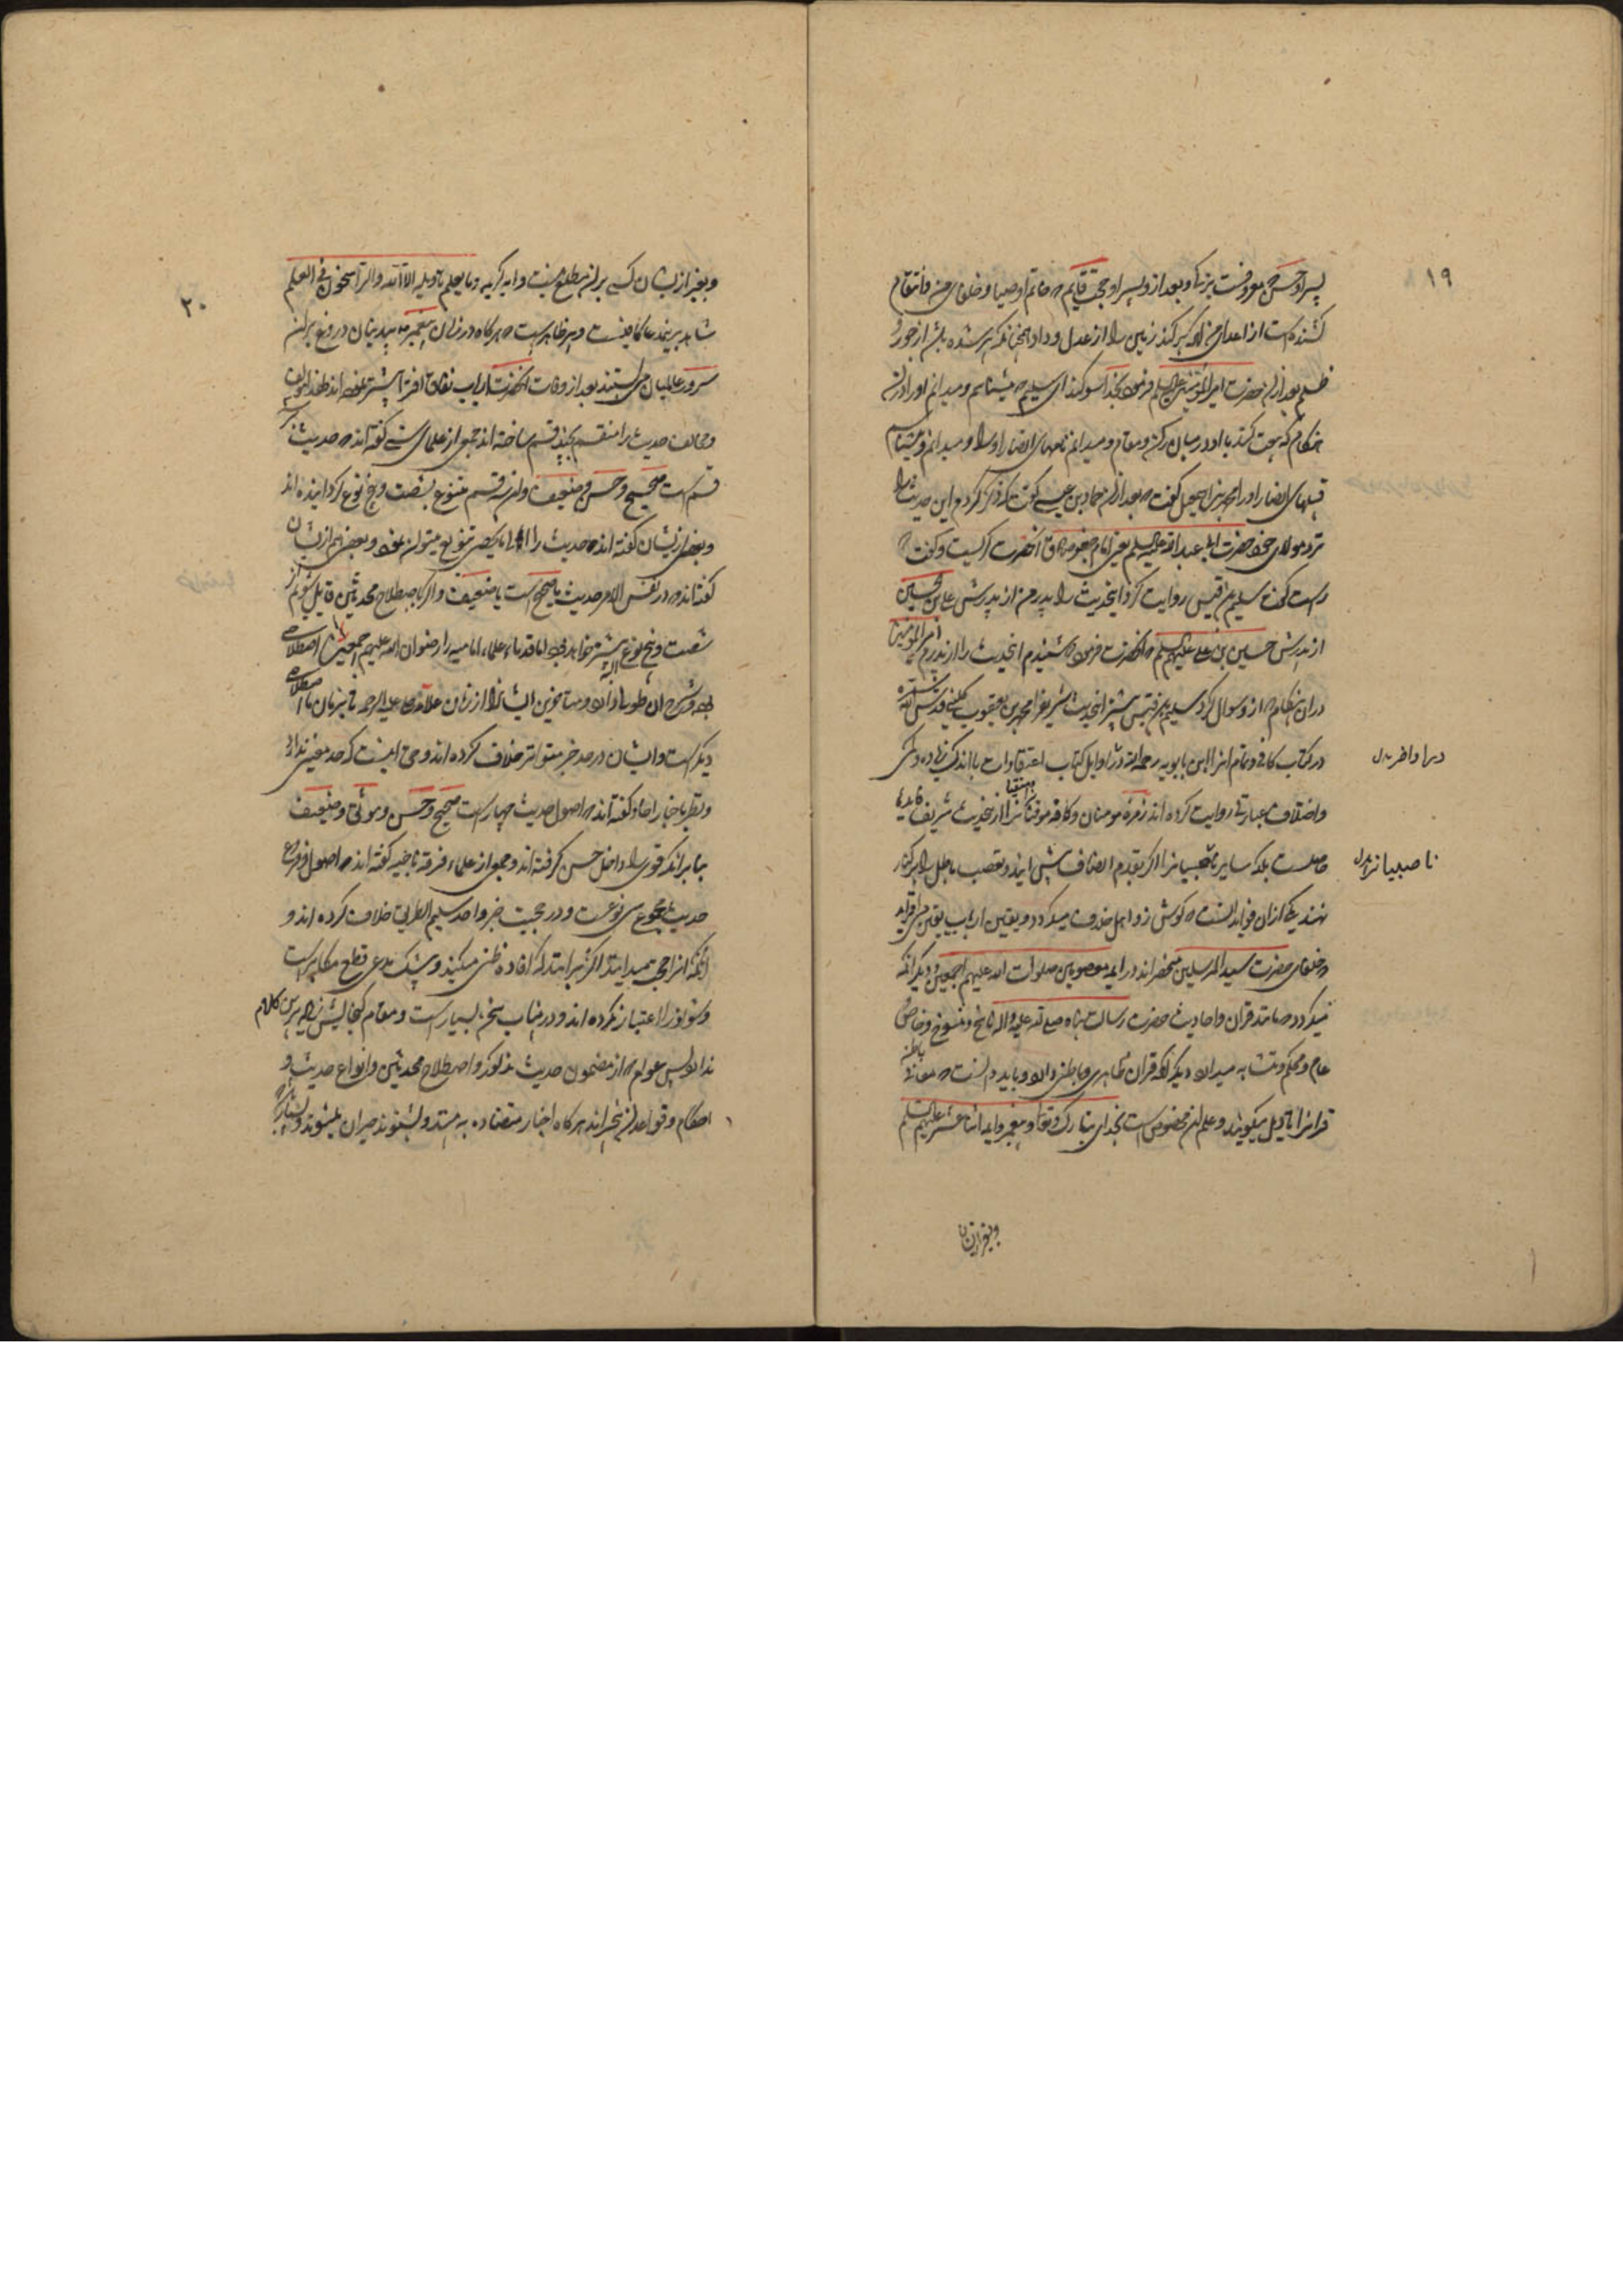 ۱۹
پسر او حسن که معروفست بزکی و بعد از و پسر او حجت قایم که خاتم اوصیا و خلفای من و انتقام
کشنده است از اعدای من که پر کند زمین را از عدل و داد همچنانکه پر شده باشد از جور و
ظلم بعد ازان حضرت امیر المؤمنین علیه السلم فرمود بخدا سوگند ای سلیم که میشناسم و میدانم او را دران
هنگام که بیعت کنند با او در میان رکن و مقام و میدانم نامهای انصار او را و میدانم و میشناسم
قبیلهای انصار او را
نزد مولای خود حضرت ابی عبد الله علیه السلم یعنی امام جعفر صادق آنحضرت گریست و گفت که
راست گفت سلیم بن قیس روایت کرد اینحدیث را پدر من از پدرش علی بن الحسین
از پدرش حسین بن علی علیهم السلم که آنحضرت فرمود که شنیدم اینحدیث را از پدرم امیر المؤمنین
دران هنگام که از و سوال کرد سلیم بن قیس
در کتاب کافی و تمام انرا ابن بابویه رحمه الله در اوایل کتاب اعتقادات با اندک زیاده و کمی
و اختلاف عبارتی روایت کرده اند زمره مومنان و کافه موقنانرا از اینحدیث شریف فایدها
حاصلست بلکه سایر انرا اگر بقدم انصاف پیش ایند و تعصب باطل را بر کنار
نهند یکی ازان فواید انست که گوش زد اهل خلاف میگردد و یقین ارباب یقین می افزاید
که خلفای حضرت سید المرسلین منحصراند در ایمه معصومین صلوات الله علیهم اجمعین و دیگر انکه
میگردد که مانند قران و احادیث حضرت رسالت پناه صلی الله علیه و اله ناسخ و منسوخ و خاص و
عام و محکم و متشابه میدارد دیگر انکه قران ظاهری و باطنی دارد و باید دانست که معانی باطنه
قرانرا تاویل میگویند و علم ان مخصوص است بخدای تبارک و تعالی و پیغمبر و ایمه اثنا عشر علیهم السلم
ناصبیانرا بدل
و بغیر ازیشان
۲۰
و بغیر ازیشان کسی بران مطلع نیست و ایه کریمه و ما یعلم تاویله الا الله و الراسخون فی العلم
شاهد برین مدعا کافیست دیگر ظاهر است که هرگاه در زمان پیغمبر بیدینان دروغ بران
سرور عالمیان می بستند بعد از وفات آنحضرت ارباب نفاق افترا بیشتر نموده اند
و مخالف حدیث را منقسم بچند قسم ساخته اند جمعی از علمای سنی گفته اند که حدیث بر سه
قسم است صحیح و حسن و ضعیف و این سه قسم متنوع بشصت و پنج نوع گردانیده اند
و بعضی ازیشان گفته اند که حدیث را الی ما لا یحصی تنویع میتوان نمود و بعضی هم ازیشان
گفته اند که در نفس الامر حدیث یا صحیح است یا ضعیف و اگر باصطلاح محدثین قایل شویم از
شصت و پنج نوع بیشتر خواهد بود اما قدماء علماء امامیه را رضوان الله علیهم اجمعین اصطلاحی
بوده و شرح ان طولی دارد و متاخرین ایشانرا از زمان علامه حلی علیه الرحمه تا این زمان اصطلاحی
دیگر است و ایشان در حد خبر متواتر خلاف کرده اند و حق اینست که حد معینی ندارد
و نظر باخبار احاد گفته اند که اصول حدیث چهار است صحیح و حسن و موثق و ضعیف
بنا بر انکه قوی را داخل حسن گرفته اند و جمعی از علماء فرقه ناجیه گفته اند که اصول و فروع
حدیث مجموع سی نوعست و در حجیت خبر واحد سلیم الطریق خلاف کرده اند و
انکه انرا حجت میداند
و در این باب سخن بسیار است و مقام گنجایش زیاده برین کلام
ندارد پس عوام که از مضمون حدیث مذکور و اصطلاح محدثین و انواع حدیث و
احکام و قواعد ان بیخبراند هرگاه اخبار متضاده به بینند و بشنوند حیران میشوند